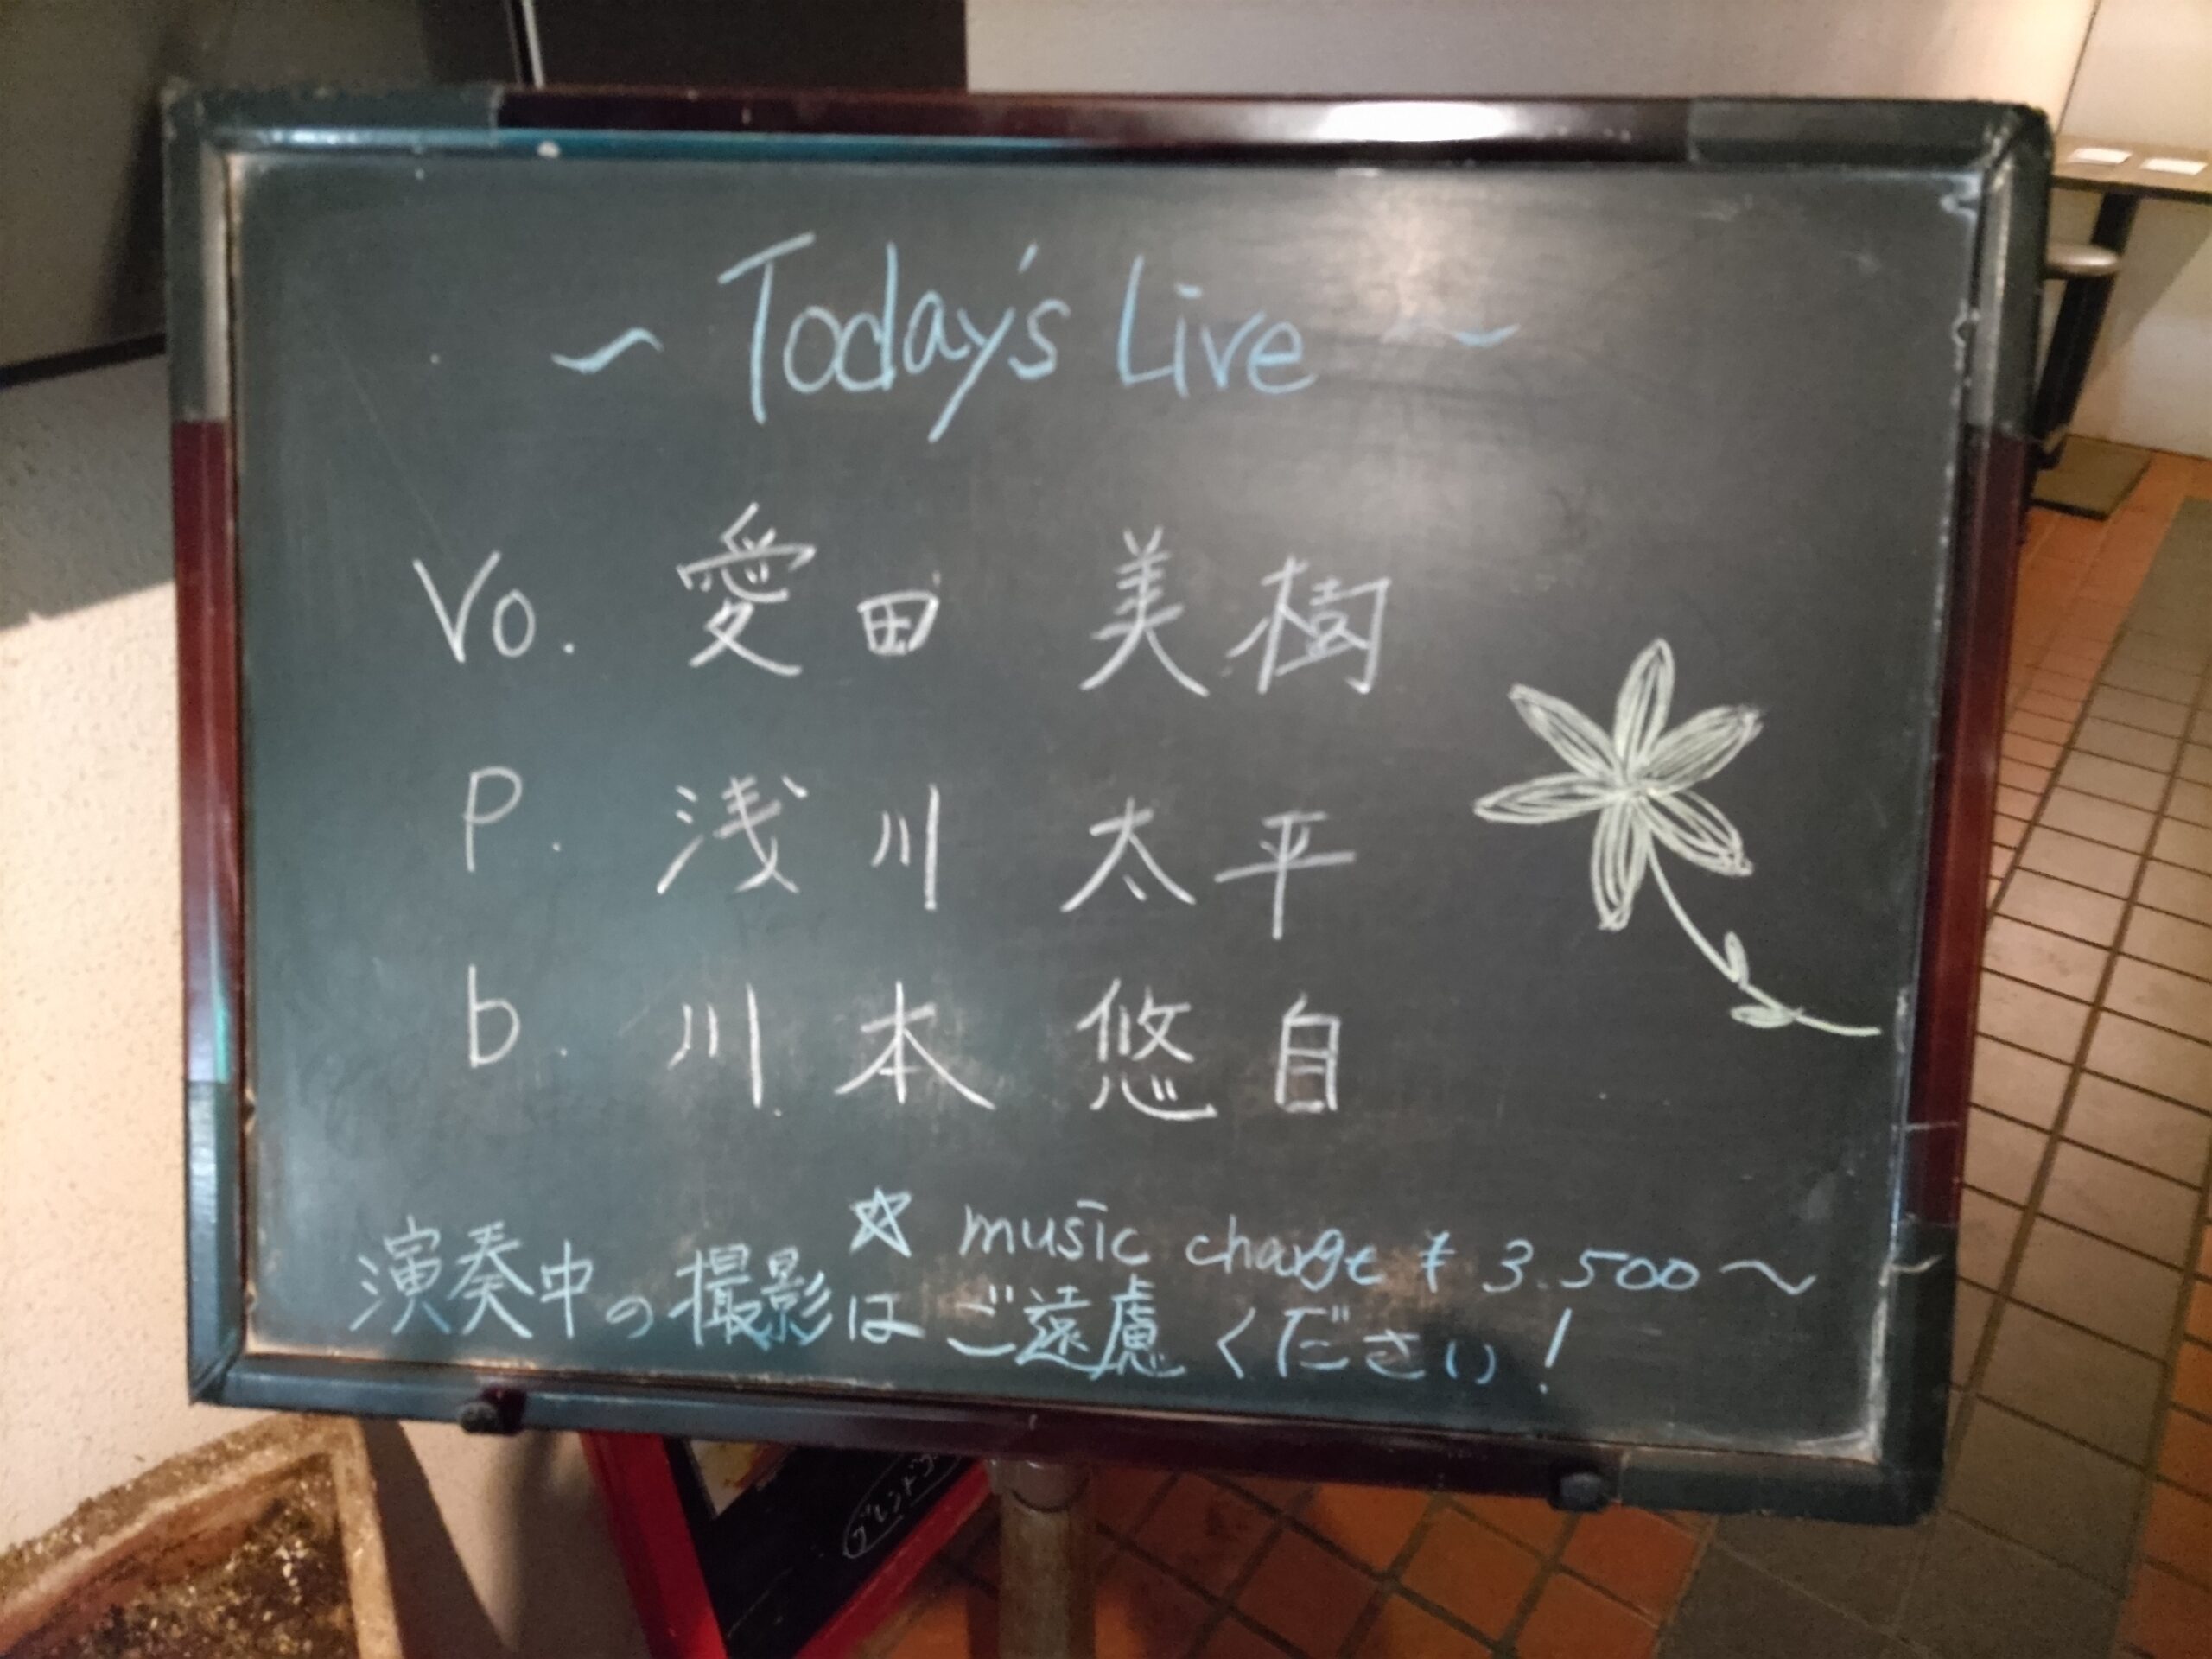 ~ Today's Live ~
Vo. 愛田 美樹
P. 浅川 太平
b. 川本 悠自
☆ music charge ¥3.500〜
演奏中の撮影はご遠慮ください!